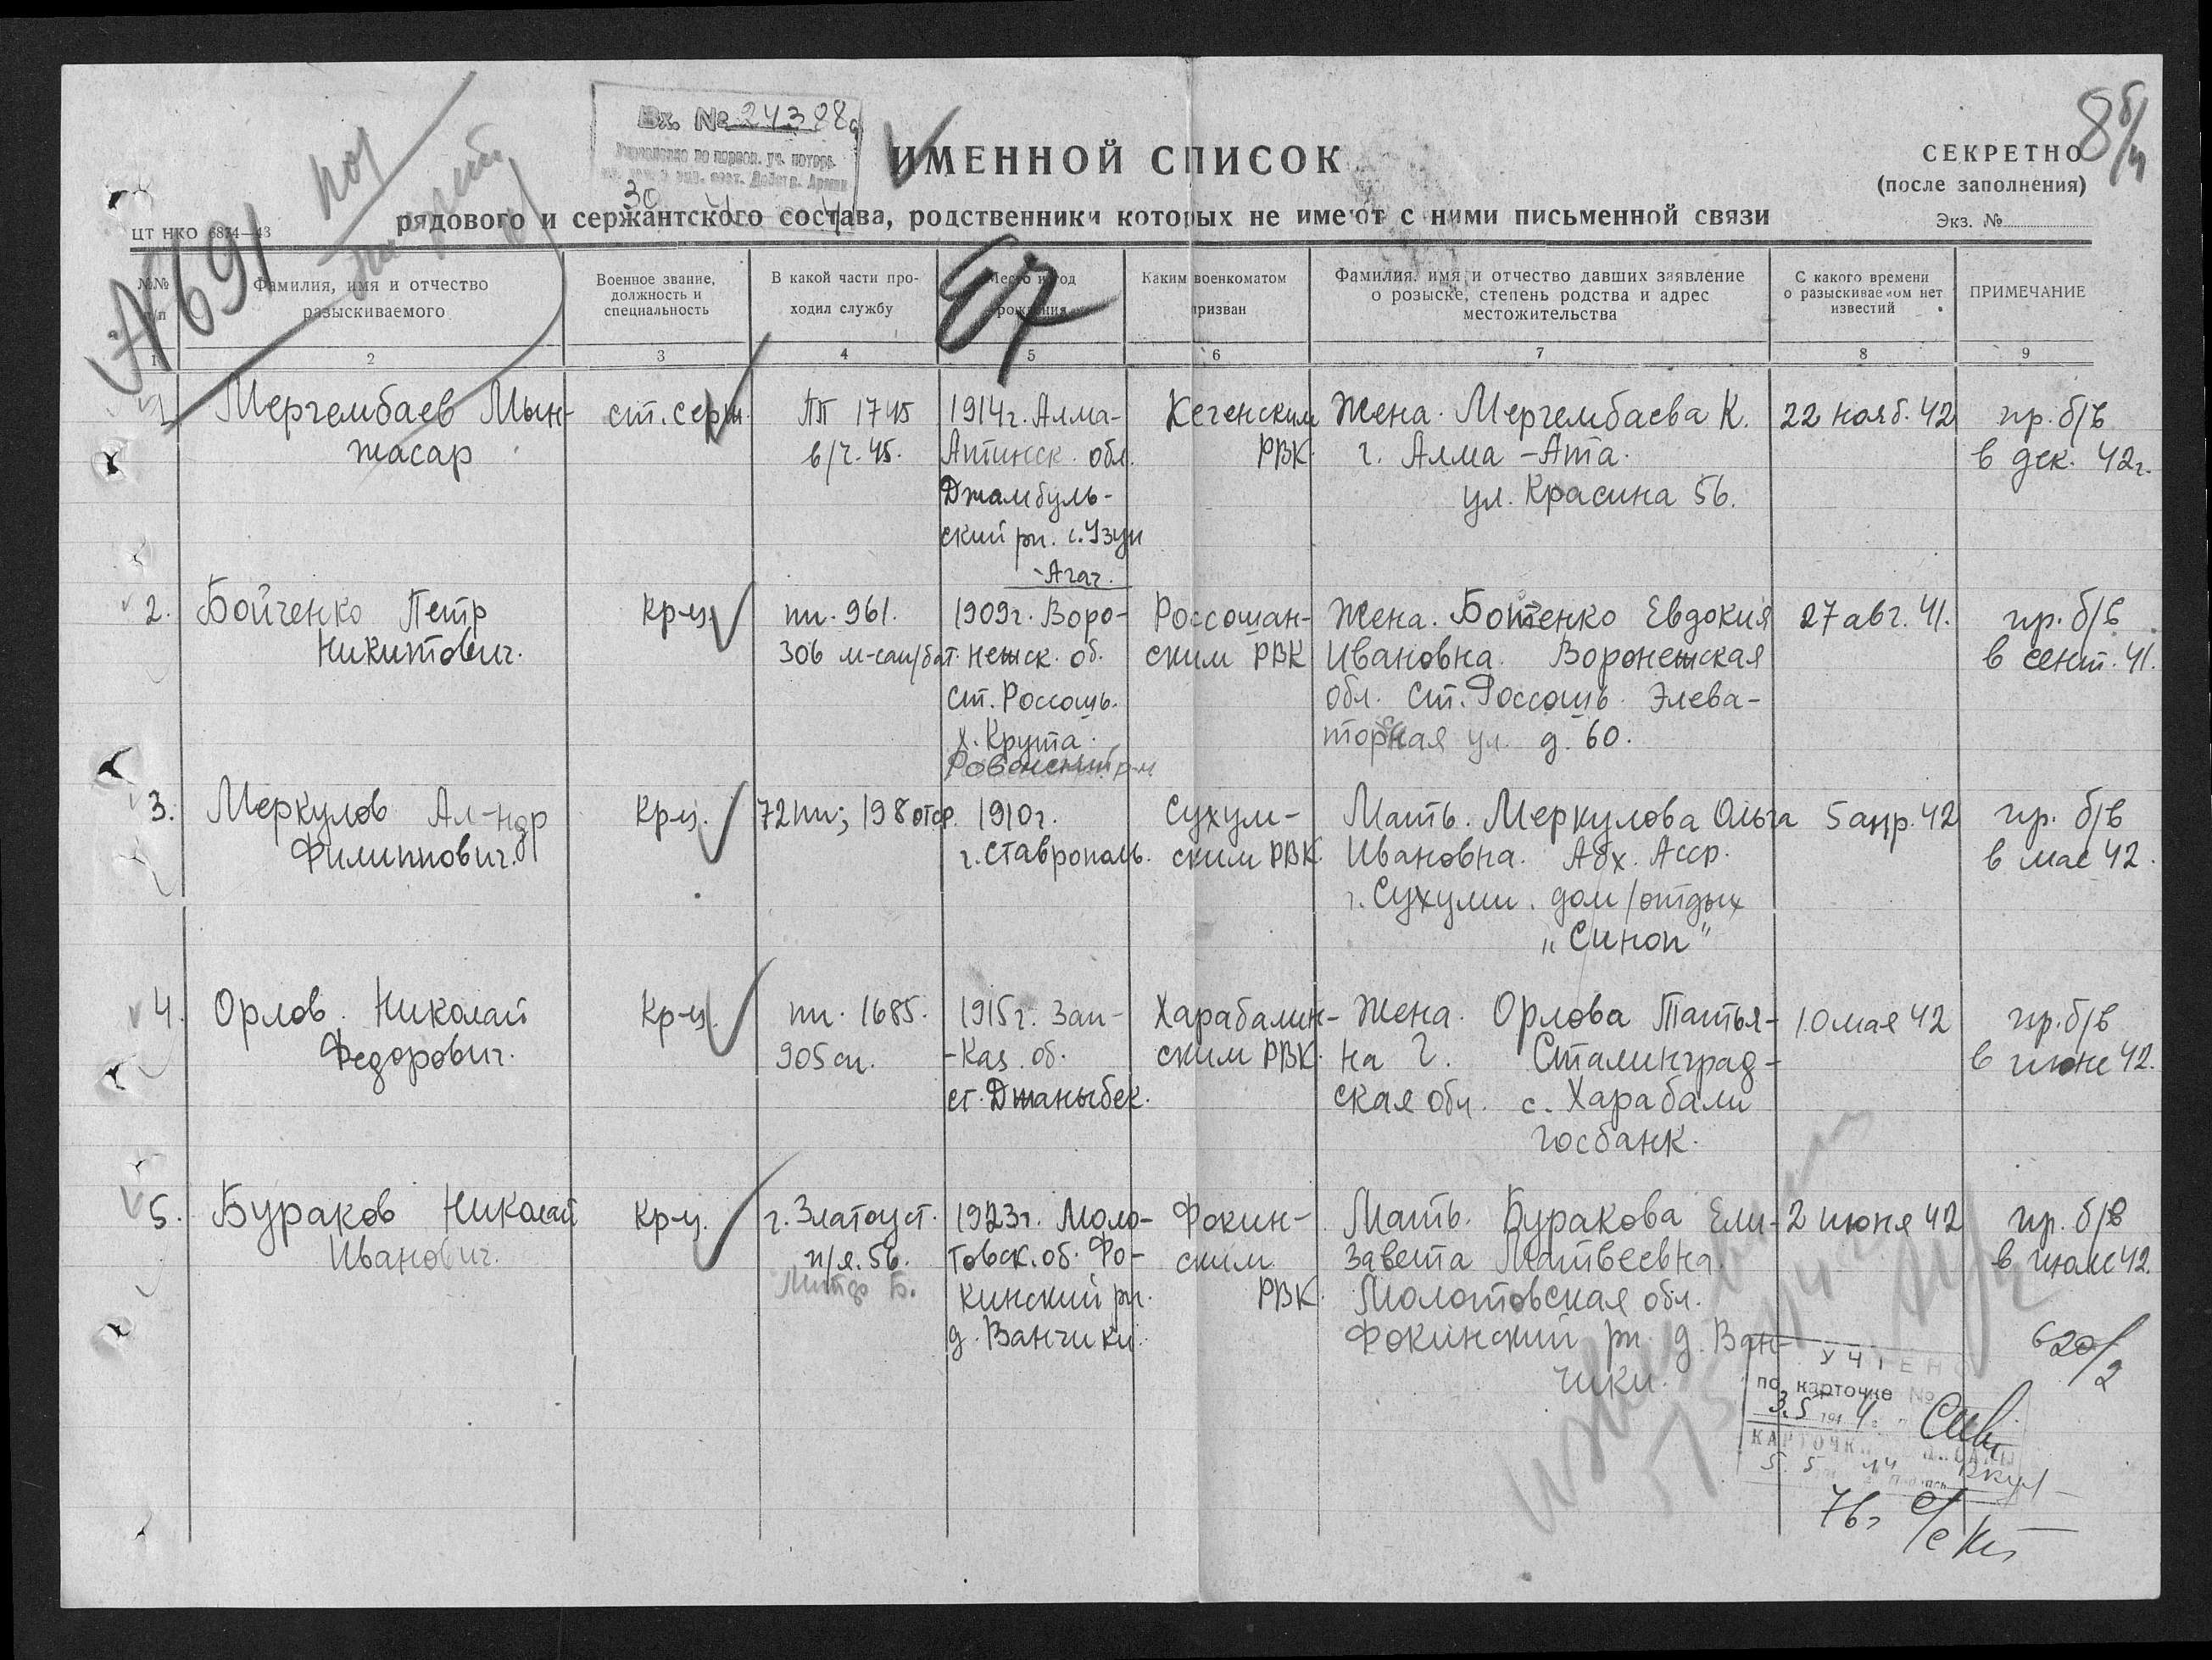 Вх. № 24398с
ИМЕННОЙ СПИСОК
СЕКРЕТНО
(после заполнения)
рядового и сержантского состава, родственники которых не имеют с ними письменной связи
Экз. №
ЦТ НКО 6874—43
691
№№ п/п
Фамилия, имя и отчество разыскиваемого
Военное звание, должность и специальность
В какой части проходил службу
Место и год рождения
Каким военкоматом призван
Фамилия, имя и отчество давших заявление о розыске, степень родства и адрес местожительства
С какого времени о разыскиваемом нет известий
ПРИМЕЧАНИЕ
1 2 3 4 5 6 7 8 9
1. Мергембаев Мын- ст. серж. ПП 1745 1914г. Алма- Кегенским Жена. Мергембаева К. 22 нояб. 42 пр. б/в
жасар в/ч. 45. Атинск. обл. РВК г. Алма-Ата. в дек. 42г.
Джамбуль- ул. Красина 56.
ский рн. с. Узун
-Агач.
2. Бойченко Петр Кр-ц. пп. 961. 1909г. Воро- Россошан- Жена. Ботенко Евдокия 27 авг. 41. пр. б/в
Никитович. 306 м-сан/бат. нежск. об. ским РВК Ивановна. Воронежская в сент. 41.
ст. Россошь. обл. Ст. Россошь. Элева-
х. Крута. торная ул. д. 60.
Ровенский р-н
3. Меркулов Ал-ндр Кр-ц. 72 пп; 198 отср. 1910г. Сухум- Мать. Меркулова Ольга 5 апр. 42 пр. б/в
Филиппович. г. Ставрополь. ским РВК. Ивановна. Абх. Асср. в мае 42.
г. Сухуми. дом/отдых
„Синоп"
4. Орлов Николай Кр-ц. пп. 1685. 1915г. Зап- Харабалин- Жена. Орлова Татья- 10 мая 42 пр. б/в
Федорович. 905 сп. -Каз. об. ским РВК. на Г. Сталинград- в июне 42.
ст. Джаныбек. ская обл. с. Харабали
Госбанк.
5. Бураков Николай Кр-ц. г. Златоуст. 1923г. Моло- Фокин- Мать. Буракова Ели- 2 июня 42 пр. б/в
Иванович. п/я. 56. товск. об. Фо- ским завета Матвеевна. в июле 42.
Литер Б. кинский рн. РВК. Молотовская обл.
д. Ванчики. Фокинский рн. д. Ван-
чики.
УЧТЕНО
по карточке №
3.5 194 4 г.